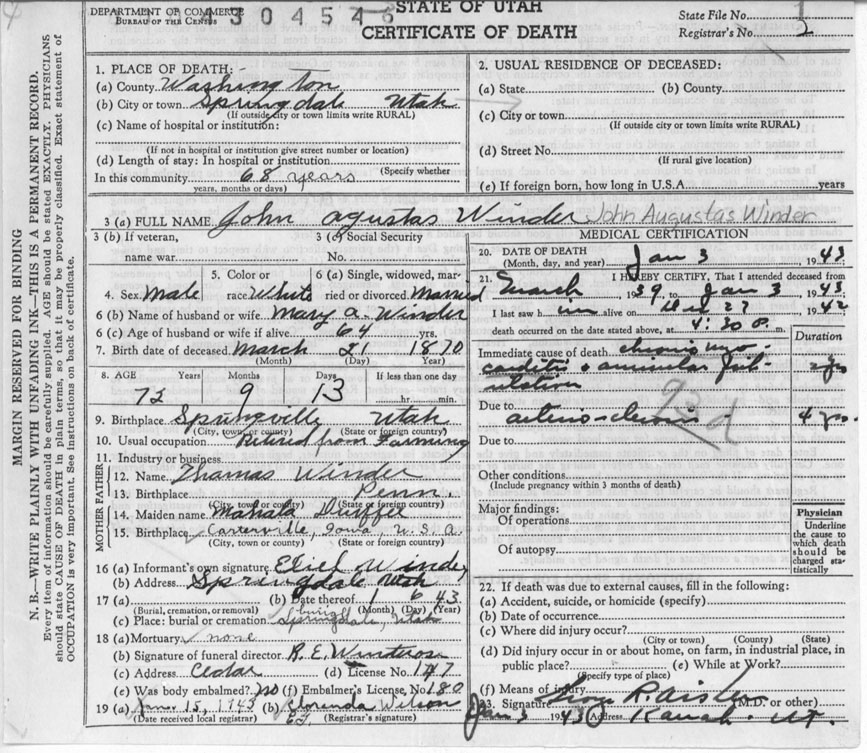 DEPARTMENT OF COMMERCE
BUREAU OF THE CENSUS
4304548
STATE OF UTAH
CERTIFICATE OF DEATH
State File No. 1
Registrar's No. 2
MARGIN RESERVED FOR BINDING
N. B.—WRITE PLAINLY WITH UNFADING INK—THIS IS A PERMANENT RECORD.
Every item of information should be carefully supplied. AGE should be stated EXACTLY. PHYSICIANS
should state CAUSE OF DEATH in plain terms, so that it may be properly classified. Exact statement of
OCCUPATION is very important. See instructions on back of certificate.
1. PLACE OF DEATH:
(a) County Washington
(b) City or town Springdale Utah
(If outside city or town limits write RURAL)
(c) Name of hospital or institution:
(If not in hospital or institution give street number or location)
(d) Length of stay: In hospital or institution
(Specify whether
In this community 68 years
years, months or days)
2. USUAL RESIDENCE OF DECEASED:
(a) State (b) County
(c) City or town
(If outside city or town limits write RURAL)
(d) Street No.
(If rural give location)
(e) If foreign born, how long in U.S.A. years
3 (a) FULL NAME John Agustas Winder John Augustas Winder
3 (b) If veteran,
name war
3 (c) Social Security
No.
4. Sex Male
5. Color or
race White
6 (a) Single, widowed, mar-
ried or divorced Married
6 (b) Name of husband or wife Mary A. Winder
6 (c) Age of husband or wife if alive 64 yrs.
7. Birth date of deceased March 21 1870
(Month) (Day) (Year)
8. AGE Years Months Days If less than one day
72 9 13 hr. min.
9. Birthplace Springville Utah
(City, town or county) (State or foreign country)
10. Usual occupation Retired from Farming
11. Industry or business
FATHER
12. Name Thomas Winder
13. Birthplace Penn.
(City, town or county) (State or foreign country)
MOTHER
14. Maiden name Mahala
15. Birthplace Carterville, Iowa, U.S.A.
(City, town or county) (State or foreign country)
16 (a) Informant's own signature Winder
(b) Address Springdale Utah
17 (a) burial (b) Date thereof 1 6 43
(Burial, cremation, or removal) (Month) (Day) (Year)
(c) Place: burial or cremation Springdale, Utah
18 (a) Mortuary none
(b) Signature of funeral director R. E.
(c) Address Cedar (d) License No. 147
(e) Was body embalmed? no (f) Embalmer's License, No. 180
19 (a) Jan. 15, 1943 (b) Clorenda Wilson
(Date received local registrar) (Registrar's signature)
MEDICAL CERTIFICATION
20. DATE OF DEATH
(Month, day, and year) Jan 3 1943
21. I HEREBY CERTIFY, That I attended deceased from
March 1939 to Jan 3 1943.
I last saw him alive on Dec 27 1942
death occurred on the date stated above, at 4:30 P. m.
Duration
Immediate cause of death chronic myo-
carditis & auricular fib-
rillation
Due to arterio-sclerosis 4 yrs.
Due to
93d
Other conditions
(Include pregnancy within 3 months of death)
Major findings:
Of operations
Of autopsy
Physician
Underline
the cause to
which death
should be
charged sta-
tistically
22. If death was due to external causes, fill in the following:
(a) Accident, suicide, or homicide (specify)
(b) Date of occurrence
(c) Where did injury occur?
(City or town) (County) (State)
(d) Did injury occur in or about home, on farm, in industrial place, in
public place? (e) While at Work?
(Specify type of place)
(f) Means of injury
23. Signature (M.D. or other)
Jan 3 1943 Address Kanab. Ut.